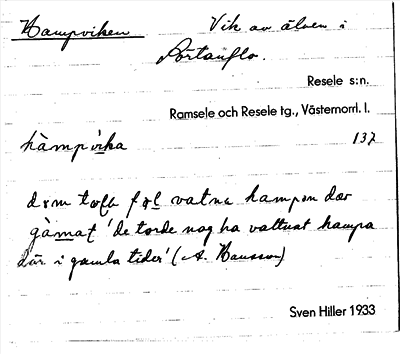 Hampviken Vik av älven i
Portanflo.
Resele s:n.
Ramsele och Resele tg., Västernorrl. l.
hàmpvika 137
vatna hampen där
'de torde nog ha vattnat hampa
där i gamla tider' (A. Hansson)
Sven Hiller 1933